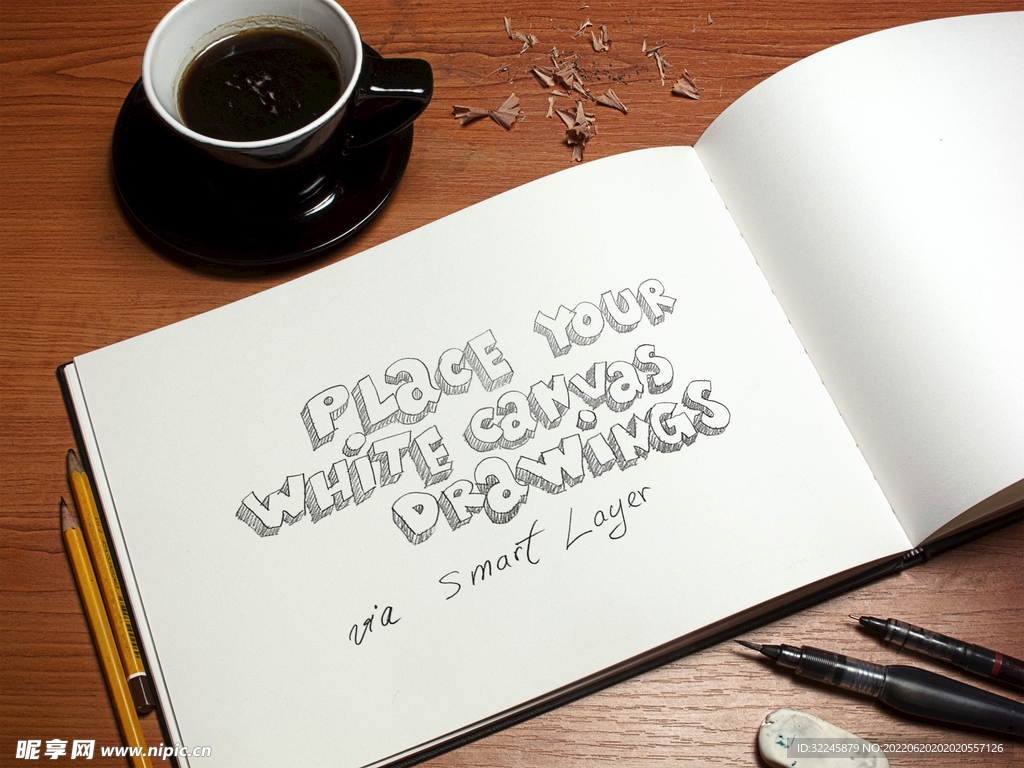 PLACE YOUR
WHITE CANVAS
DRAWINGS
via Smart Layer
昵享网 www.nipic.cn
ID:32245879 NO:20220620202020557126